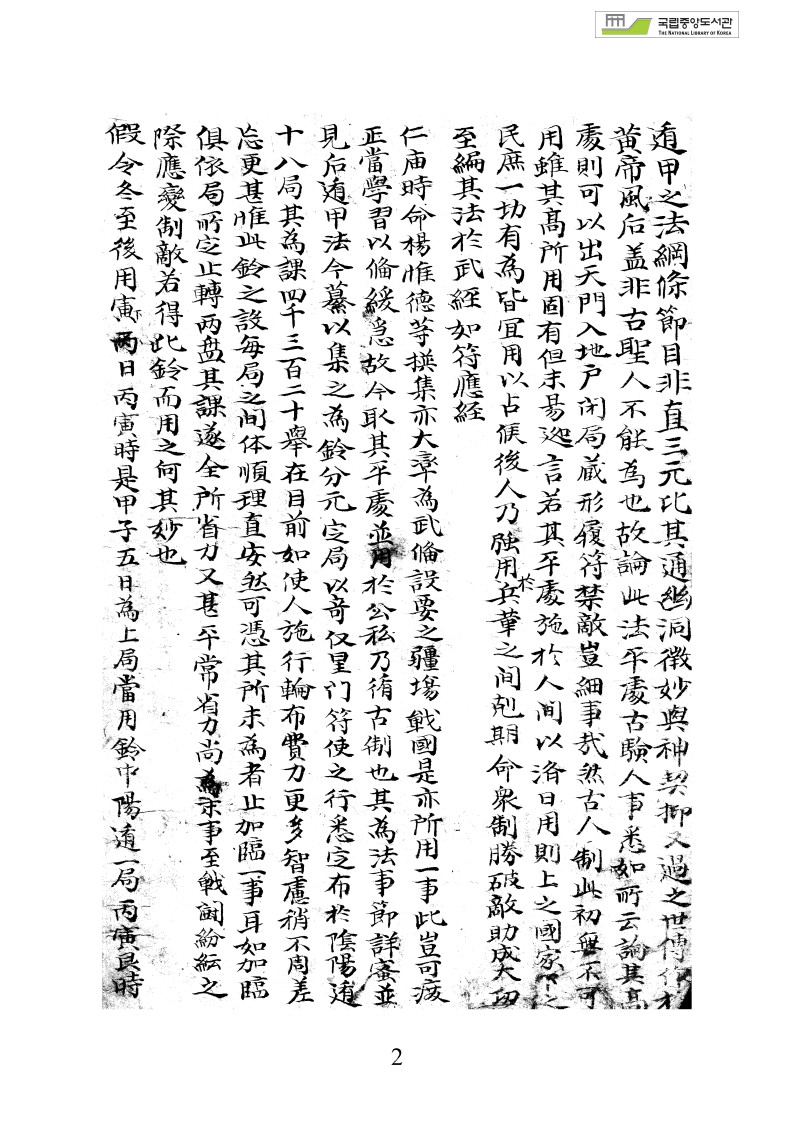 국립중앙도서관
THE NATIONAL LIBRARY OF KOREA
遁甲之法綱條節目非直三元比其通幽洞微妙與神契抑又過之世傳作於
黃帝風后盖非古聖人不能為也故論此法平處古驗人事悉如所云論其高
處則可以出天門入地戶閉局藏形履符禁敵豈細事哉然古人制此初無不可
用雖其高所用固有但未易迯言若其平處施於人間以洛日用則上之國家下之
民庶一切有為皆宜用以占候後人乃強用於兵革之間剋期命衆制勝破敵助成大功
至編其法於武經如符應經
仁庙時命楊惟德等撰集亦大率為武俻設要之疆埸戰國是亦所用一事此豈可痰
正當學習以俻緩急故今取其平處並用於公私乃循古制也其為法事節詳蜜並
見后遁甲法今纂以集之為鈴分元定局以奇仪星门符使之行悉定布於陰陽遁
十八局其為課四千三百二十舉在目前如使人施行輪布費力更多智慮稍不周差
忘更甚惟此鈴之設每局之间体順理直安然可憑其所未為者止加臨一事耳如加臨
俱依局所定止轉两盘其課遂全所省力又甚平常省力尚為末事至戰鬪紛紜之
際應變制敵若得此鈴而用之何其妙也
假令冬至後用寅下两日丙寅時是甲子五日為上局當用鈴中陽遁一局丙寅艮時
2